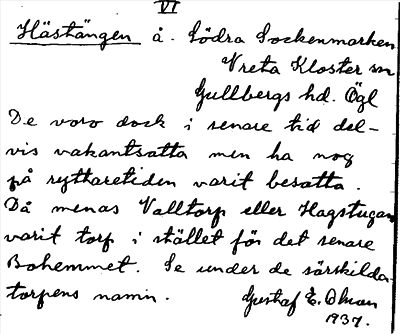 VI
Hästängen å. Södra Sockenmarken
Vreta Kloster sn
Gullbergs hd. Ögl
De voro dock i senare tid del-
vis vakantsatta men ha nog
på ryttaretiden varit besatta.
Då menas Valltorp eller Hagstugan
varit torp i stället för det senare
Bohemmet. Se under de särskilda
torpens namn.
Gustaf E. Olman
1937.